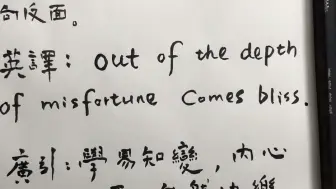 的反面。
英譯：out of the depth
of misfortune comes bliss.
廣引：學易知變，內心